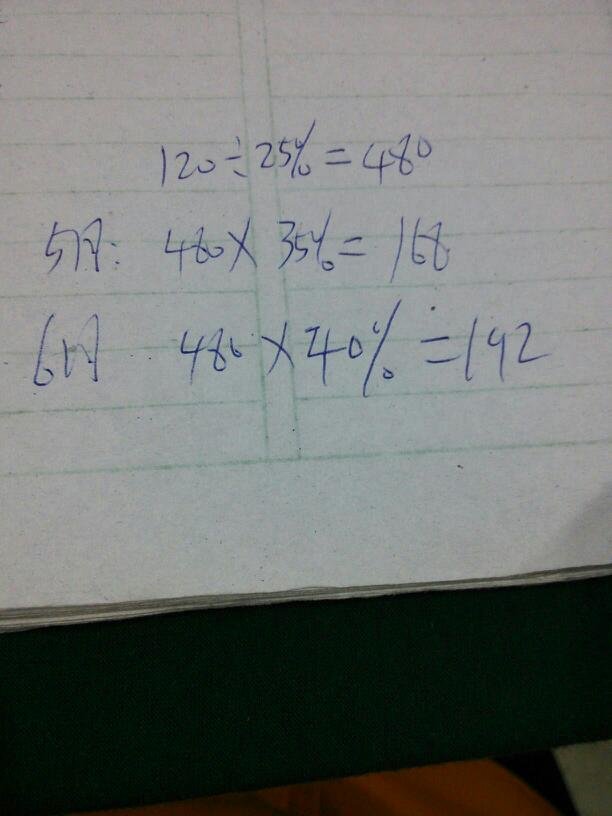 120÷25%=480
5月: 480×35%=168
6月 480×40%=192